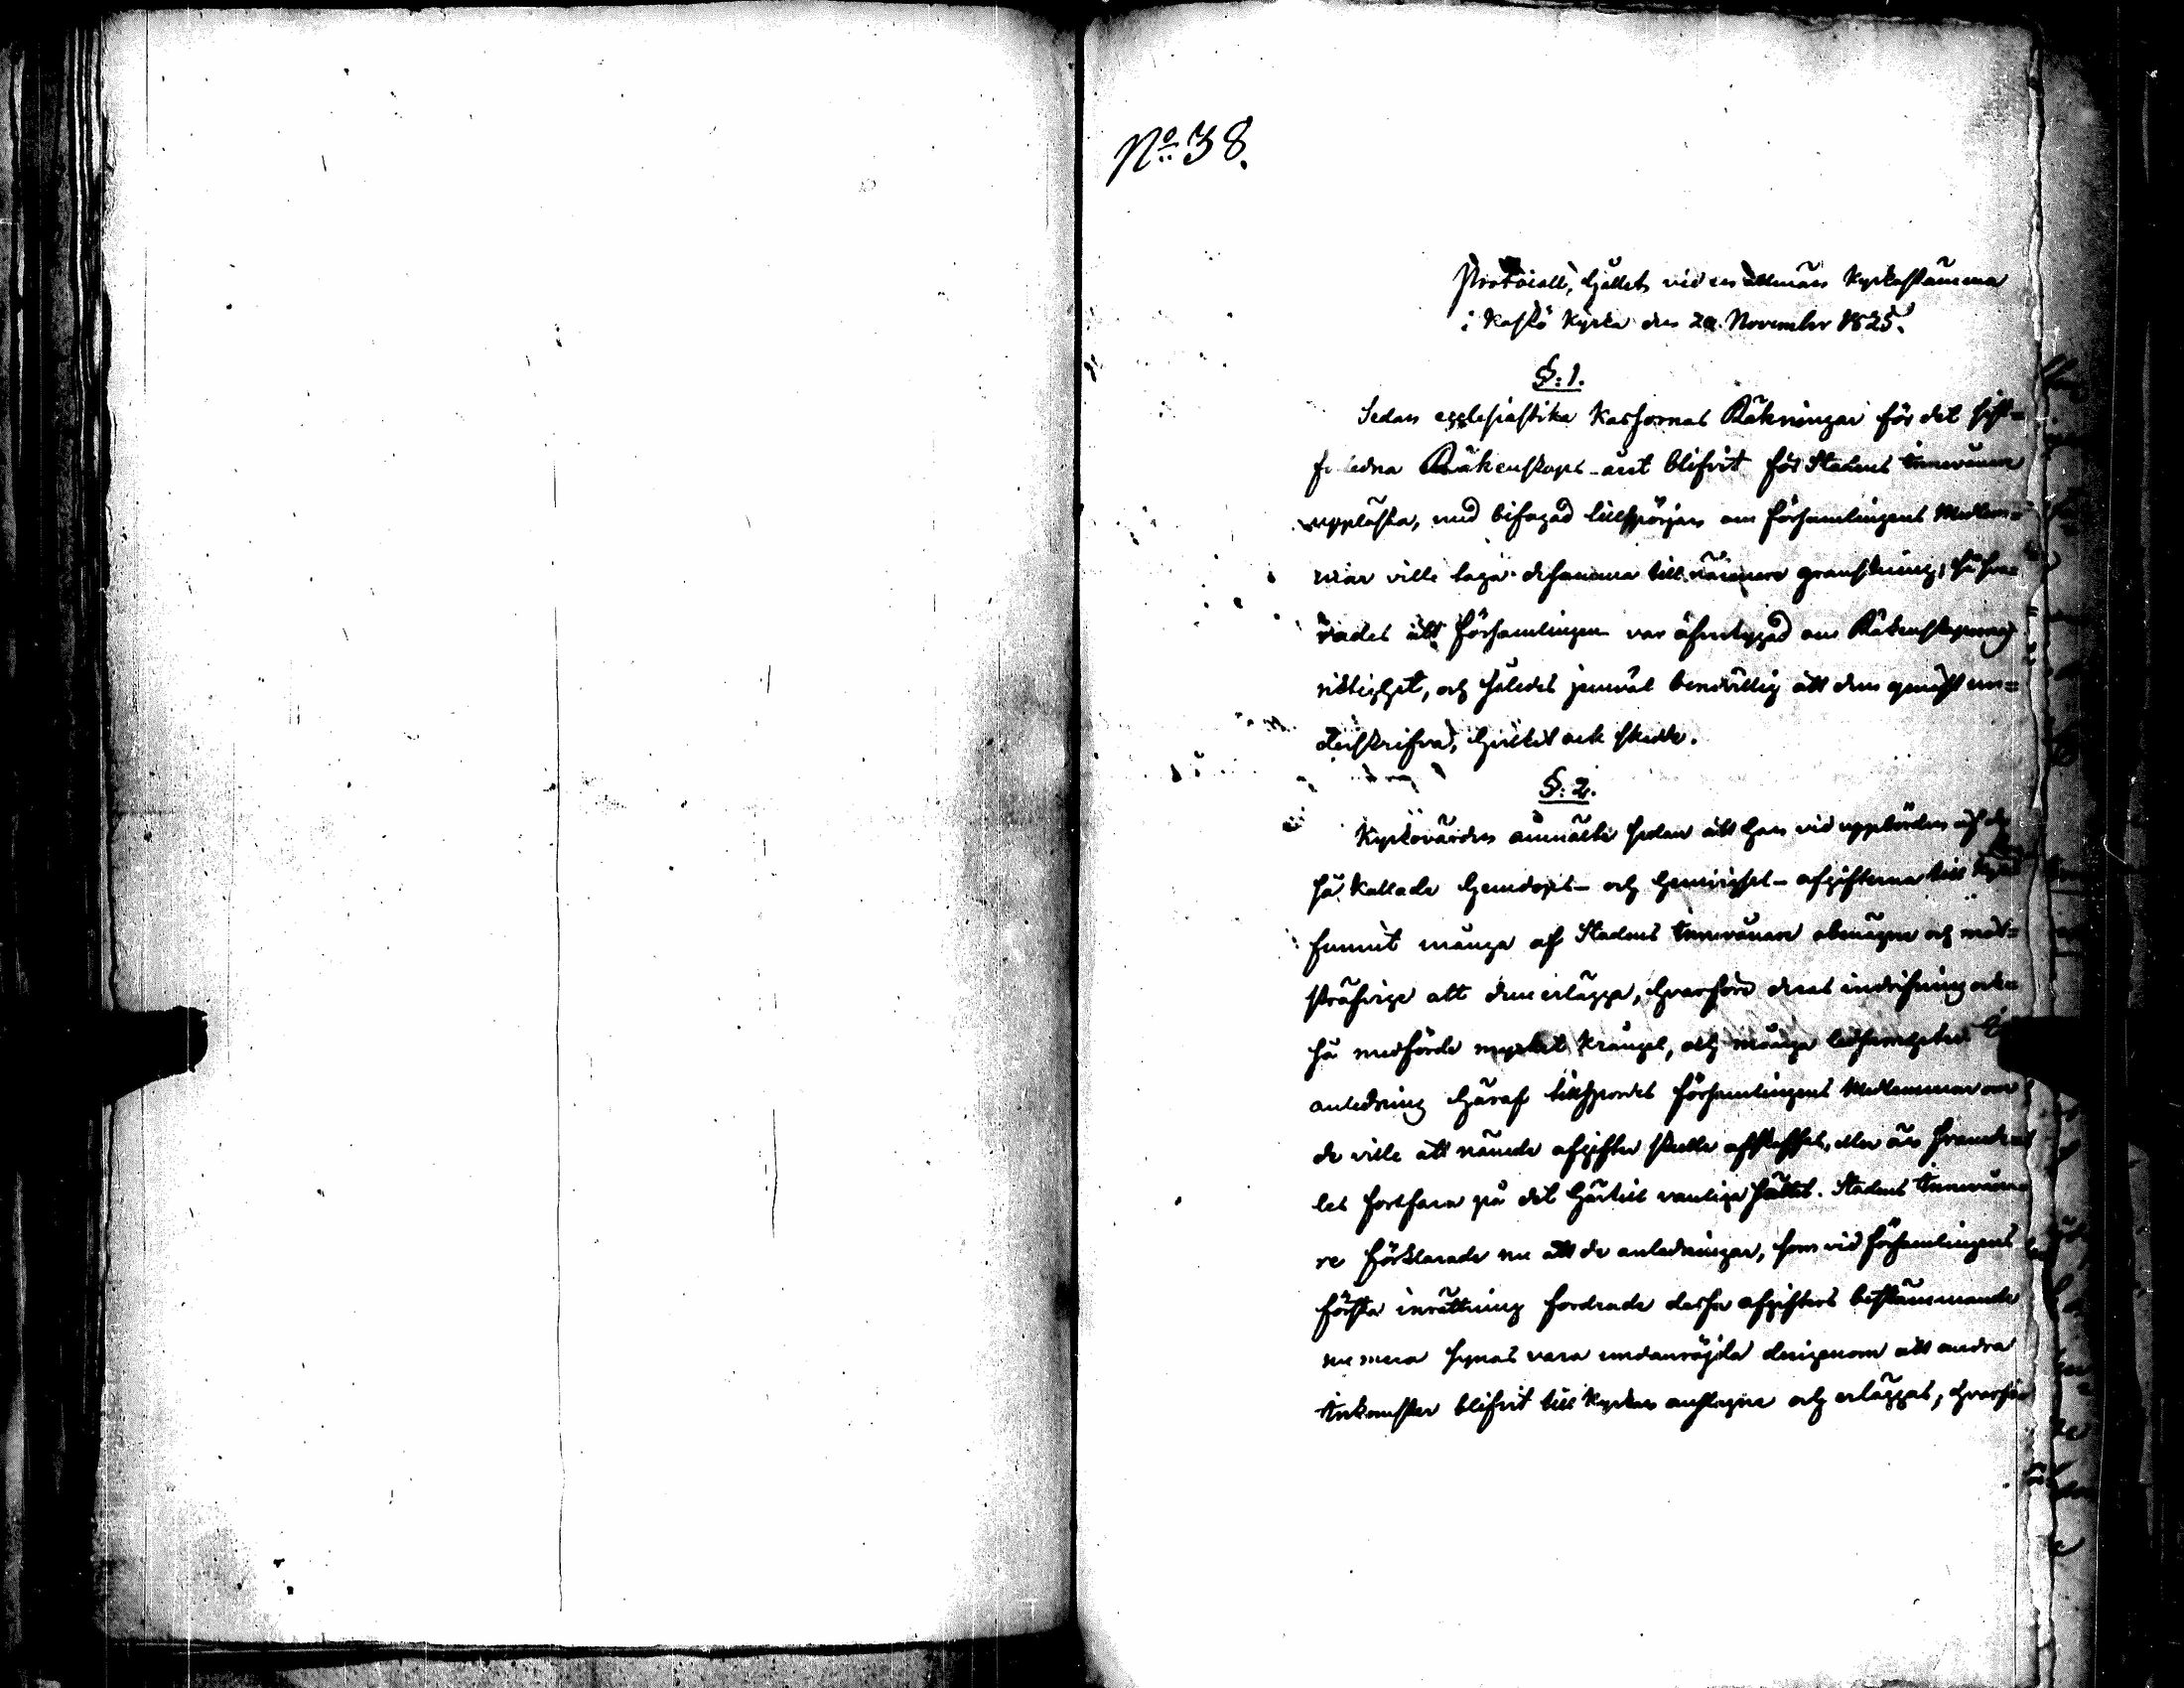 No: 38.
Protocoll, hållet vid en allmän Kyrkostämma
i Kaskö Kyrka den 20 November 1825.
§: 1.
Sedan ecclesiastike Kassornas Räkningar för det sist-
förledna Räkenskaps-året blifvit för Stadens Innevånare
uppläste, med bifogad tillspörjan om församlingens Medlem-
mar ville taga desamma till närmare granskning, så sva-
rades att församlingen var öfvertygad om Räkenskapernas
riktighet, och således jemväl benviллig att dem genast un-
derskrifva, hvilket ock skedde.
§: 2.
Kyrkovärden anmälte sedan att han vid uppbörden af de
så kallade hemdops- och hemvigsel-afgifterna till Kyrkan
funnit många af Stadens Innevånare obenägne och mot-
sträfvige att dem erlägga, hvarföre deras indrifning ock-
så medförde mycket krångel, och många ledsamheter. I
anledning häraf tillspordes församlingens Medlemmar om
de ville att nämde afgifter skulle afskaffas, eller än framde-
les fortfara på det härtill vanliga sättet. Stadens Innevåna-
re förklarade nu att de anledningar, som vid församlingens
första inrättning fordrade dessa afgifters bestämmande
nu mera synas vara undanröjda derigenom att andra
Inkomster blifvit till Kyrkan anslagne och erläggas, hvarför